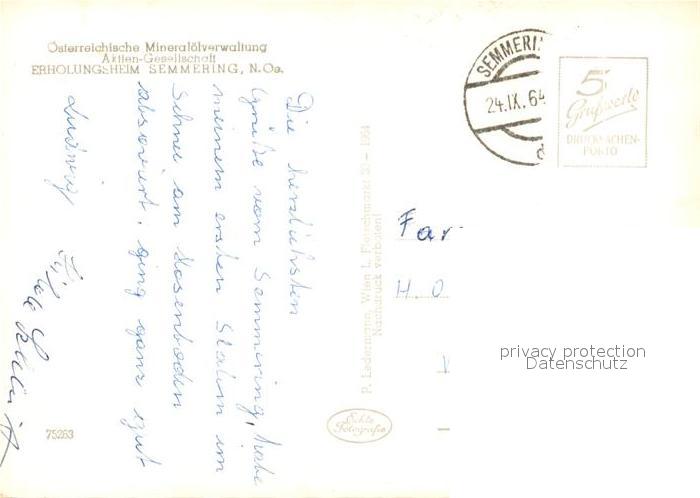 Österreichische Mineralölverwaltung
Aktien-Gesellschaft
ERHOLUNGSHEIM SEMMERING, N.Oe.
SEMMERIN
24.IX.64
5
Grußworte
DRUCKSACHEN-
PORTO
Die herzlichsten
Grüße vom Semmering, habe
meinem ersten Slalom im
Schnee am Hosenboden
absolviert, ging ganz gut
Ludwig
P. Ledermann, Wien I., Fleischmarkt 20 - 1964
Nachdruck verboten!
Far
H. O
privacy protection
Datenschutz
Echte
Fotografie
75263